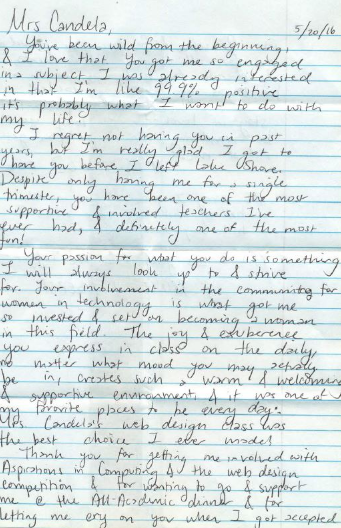 Mrs Candela, 5/20/16
You've been wild from the beginning,
& I love that you got me so engaged
in a subject I was already interested
in that I'm like 99.9% positive
it's probably what I want to do with
my life.
I regret not having you in past
years, but I'm really glad I got to
have you before I left Lake Shore.
Despite only having me for a single
trimester, you have been one of the most
supportive & involved teachers I've
ever had, & definitely one of the most
fun!
Your passion for what you do is something
I will always look up to & strive
for. Your involvement in the community for
women in technology is what got me
so invested & set on becoming a woman
in this field. The joy & exuberence
you express in class on the daily
no matter what mood you may actually
be in, creates such a warm & welcoming
& supportive environment, & it was one of
my favorite places to be every day.
Mrs Candela's web design class was
the best choice I ever made!
Thank you for getting me involved with
Aspirations in Computing & the web design
competition & for wanting to go & support
me @ the All-Academic dinner & for
letting me cry on you when I got accepted